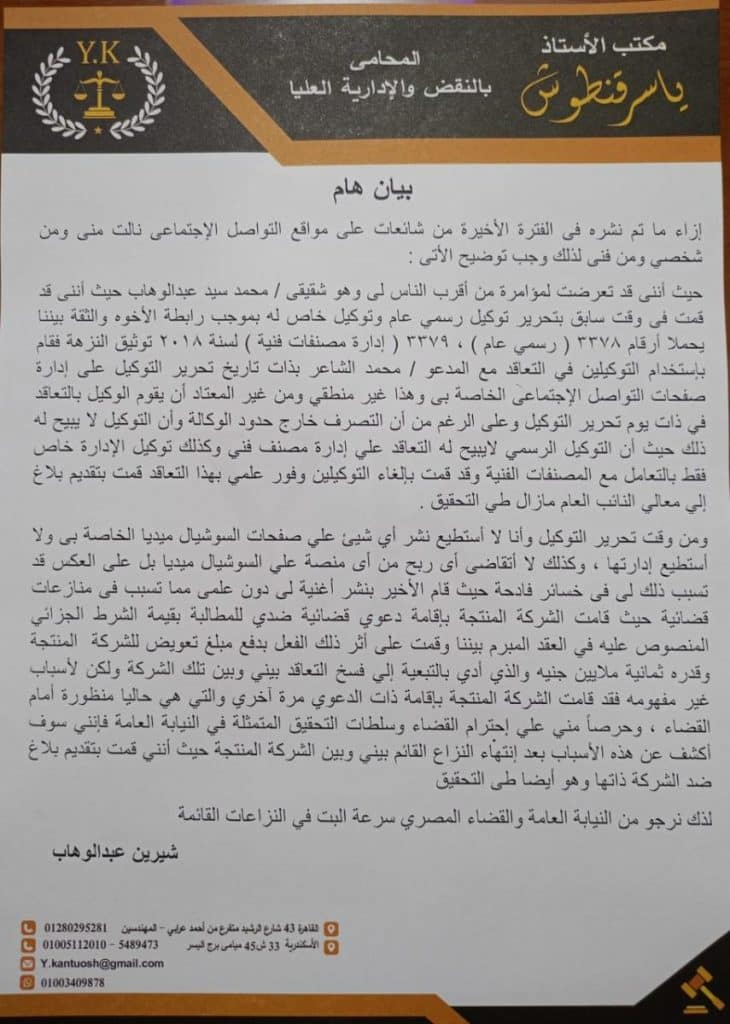 Y.K
المحامى
بالنقض والإدارية العليا
مكتب الأستاذ
ياسر قنطوش
بيان هام
إزاء ما تم نشره فى الفترة الأخيرة من شائعات على مواقع التواصل الإجتماعى نالت منى ومن
شخصي ومن فنى لذلك وجب توضيح الأتى :
حيث أننى قد تعرضت لمؤامرة من أقرب الناس لى وهو شقيقى / محمد سيد عبدالوهاب حيث أننى قد
قمت فى وقت سابق بتحرير توكيل رسمي عام وتوكيل خاص له بموجب رابطة الأخوه والثقة بيننا
يحملا أرقام ٣٣٧٨ ( رسمي عام ) ، ٣٣٧٩ ( إدارة مصنفات فنية ) لسنة ٢٠١٨ توثيق النزهة فقام
بإستخدام التوكيلين في التعاقد مع المدعو / محمد الشاعر بذات تاريخ تحرير التوكيل على إدارة
صفحات التواصل الإجتماعى الخاصة بى وهذا غير منطقي ومن غير المعتاد أن يقوم الوكيل بالتعاقد
في ذات يوم تحرير التوكيل وعلى الرغم من أن التصرف خارج حدود الوكالة وأن التوكيل لا يبيح له
ذلك حيث أن التوكيل الرسمي لايبيح له التعاقد علي إدارة مصنف فني وكذلك توكيل الإدارة خاص
فقط بالتعامل مع المصنفات الفنية وقد قمت بإلغاء التوكيلين وفور علمي بهذا التعاقد قمت بتقديم بلاغ
إلي معالي النائب العام مازال طي التحقيق .
ومن وقت تحرير التوكيل وأنا لا أستطيع نشر أي شيئ علي صفحات السوشيال ميديا الخاصة بى ولا
أستطيع إدارتها ، وكذلك لا أتقاضى أى ربح من أى منصة علي السوشيال ميديا بل على العكس قد
تسبب ذلك لى فى خسائر فادحة حيث قام الأخير بنشر أغنية لى دون علمى مما تسبب فى منازعات
قضائية حيث قامت الشركة المنتجة بإقامة دعوي قضائية ضدي للمطالبة بقيمة الشرط الجزائي
المنصوص عليه في العقد المبرم بيننا وقمت على أثر ذلك الفعل بدفع مبلغ تعويض للشركة المنتجة
وقدره ثمانية ملايين جنيه والذي أدي بالتبعية إلي فسخ التعاقد بيني وبين تلك الشركة ولكن لأسباب
غير مفهومه فقد قامت الشركة المنتجة بإقامة ذات الدعوي مرة آخري والتي هي حاليا منظورة أمام
القضاء ، وحرصاً مني علي إحترام القضاء وسلطات التحقيق المتمثلة في النيابة العامة فإنني سوف
أكشف عن هذه الأسباب بعد إنتهاء النزاع القائم بيني وبين الشركة المنتجة حيث أنني قمت بتقديم بلاغ
ضد الشركة ذاتها وهو أيضا طى التحقيق
لذك نرجو من النيابة العامة والقضاء المصري سرعة البت في النزاعات القائمة
شيرين عبدالوهاب
القاهرة 43 شارع الرشيد متفرع من أحمد عرابي - المهندسين 01280295281
الأسكندرية 33 ش45 ميامى برج اليسر 01005112010 - 5489473
Y.kantuosh@gmail.com
01003409878